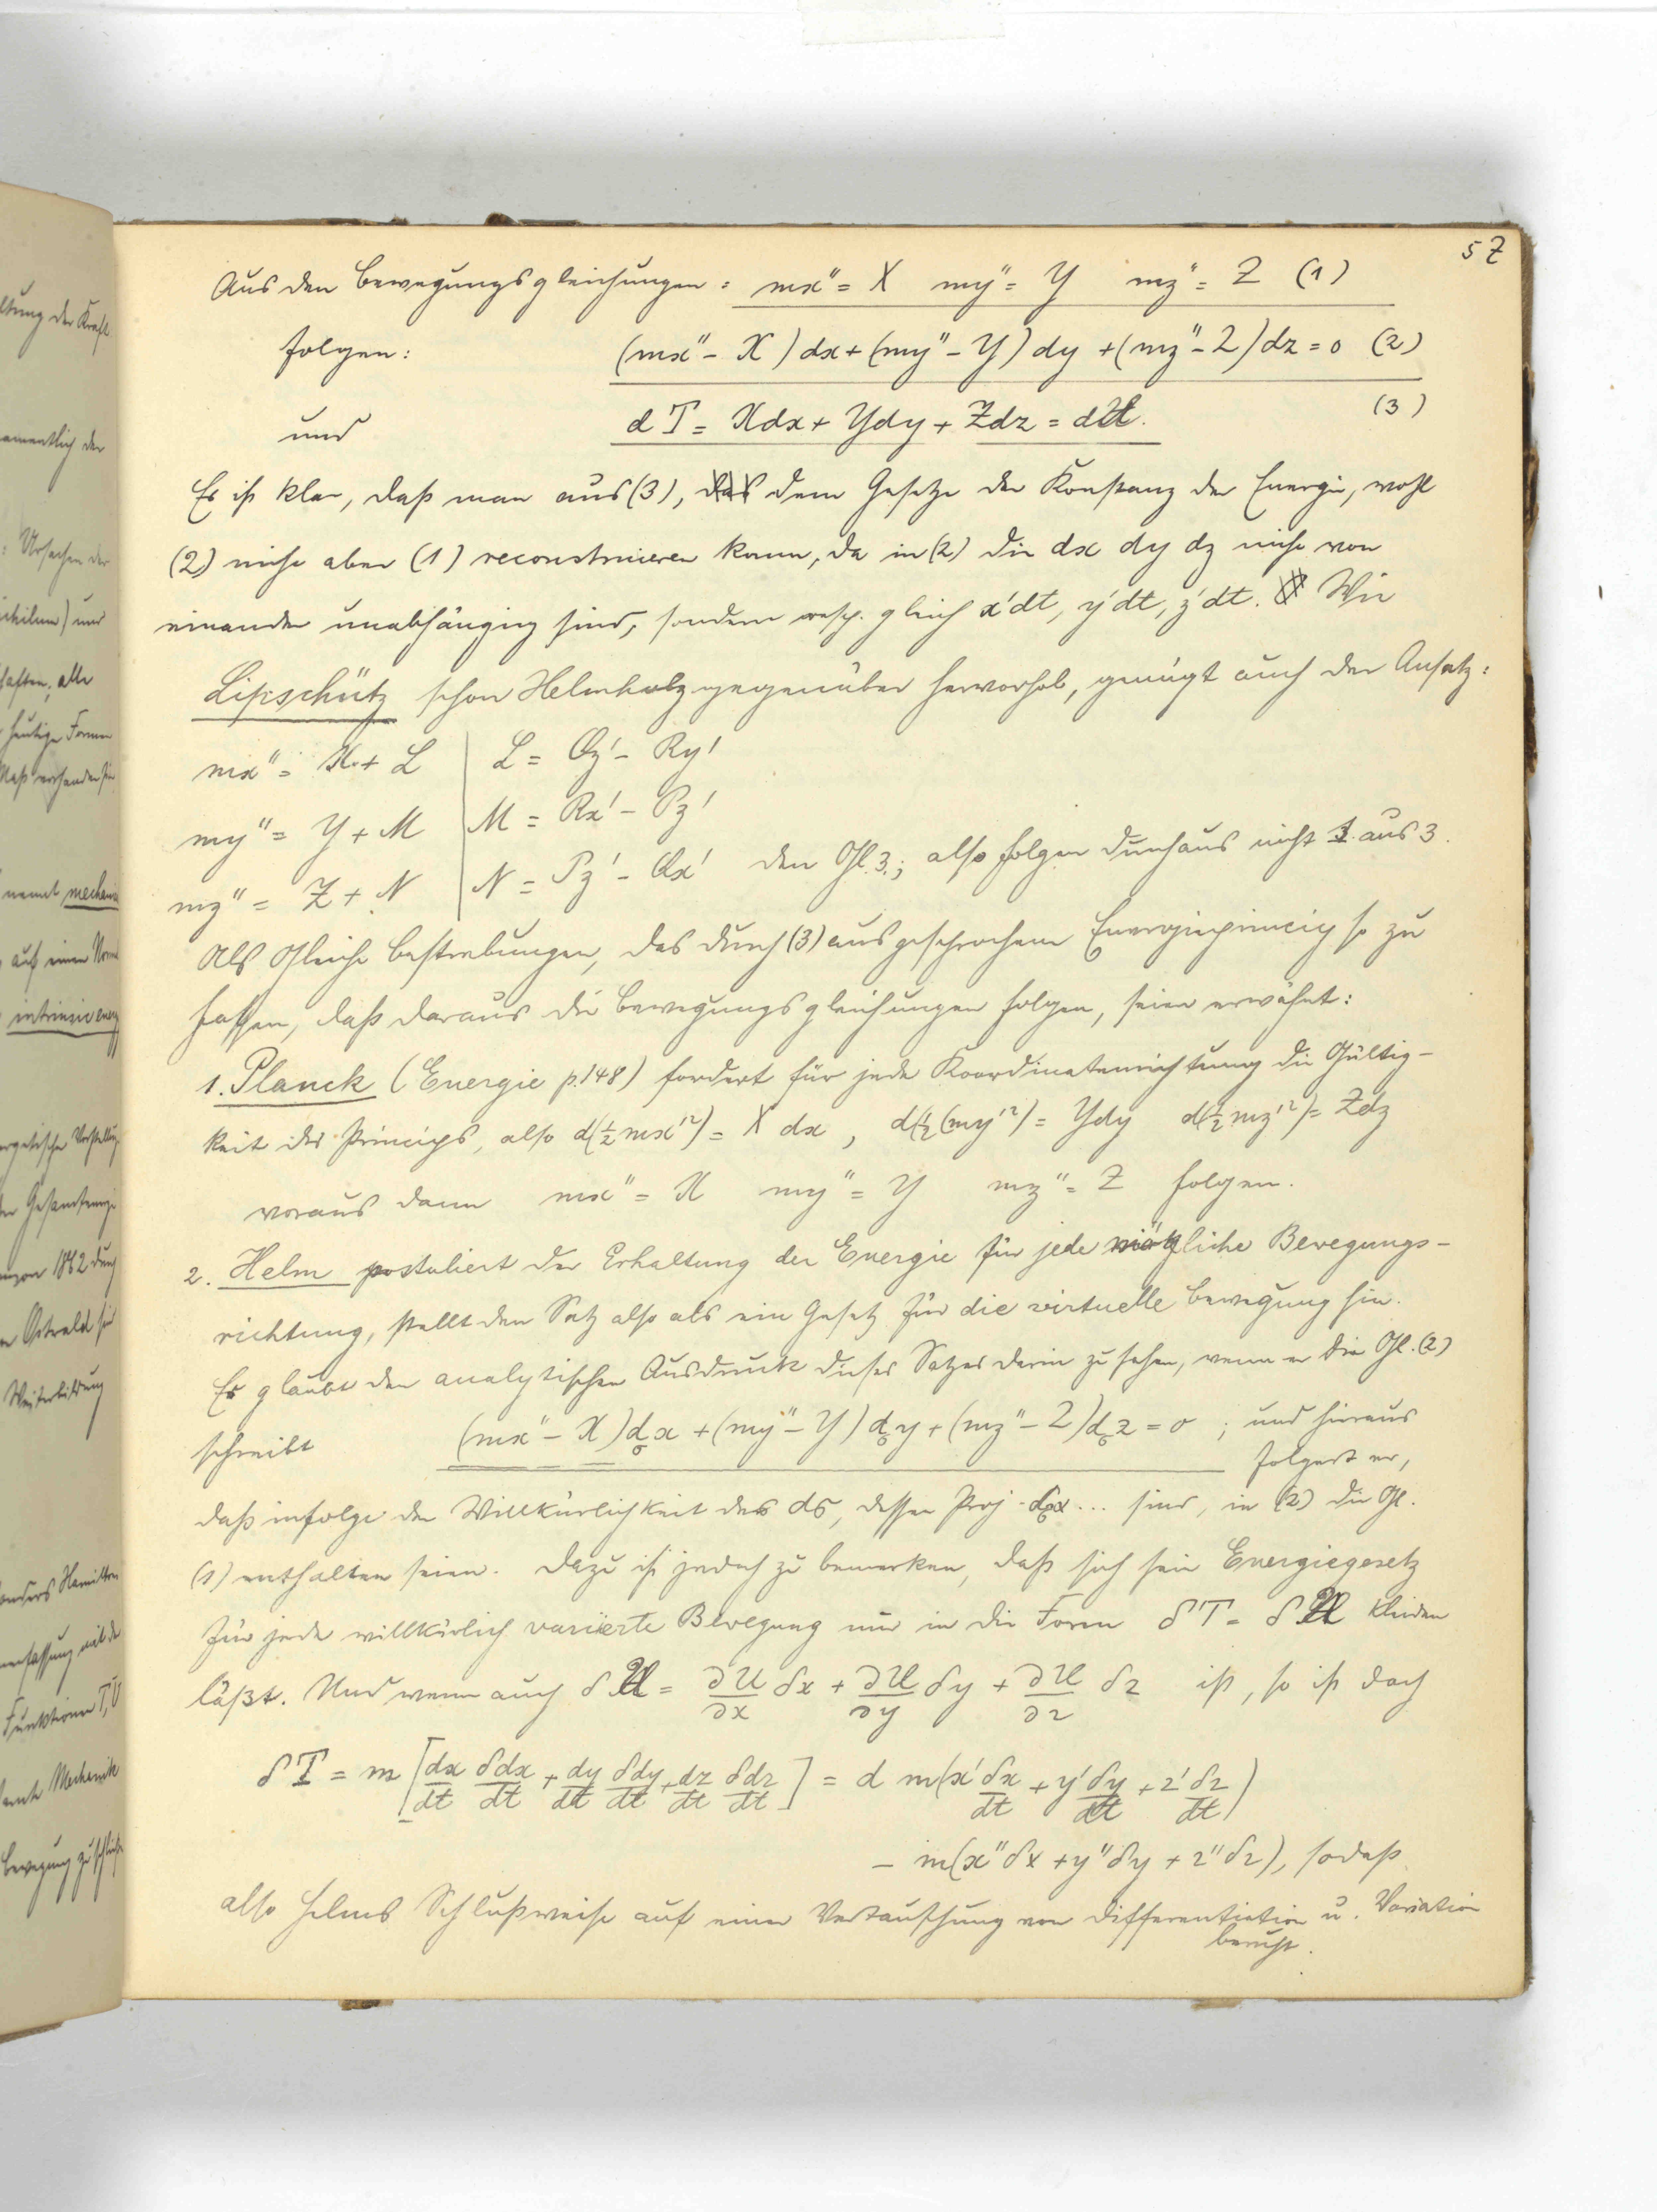 57
Aus den Bewegungsgleichungen: mx" = X my" = Y mz" = Z (1)
folgen: (mx" - X) dx + (my" - Y) dy + (mz" - Z) dz = 0 (2)
und dT = Xdx + Ydy + Zdz = dU. (3)
Es ist klar, daß man aus (3), das dem Gesetze der Konstanz der Energie, wohl
(2) nicht aber (1) reconstruieren kann, da in (2) die dx dy dz nicht von
einander unabhängig sind, sondern resp. gleich x'dt, y'dt, z'dt. Wie
Lipschütz schon Helmholz gegenüber hervorhob, genügt auch der Ansatz:
mx" = X + L | L = Qz' - Ry'
my" = Y + M | M = Rx' - Pz'
mz" = Z + N | N = Pz' - Qx' den Gl. 3.; also folgen durchaus nicht 1. aus 3.
Als Gleiche Bestrebungen, das durch (3) ausgesprochene Energieprincip so zu
fassen, daß daraus die Bewegungsgleichungen folgen, seien erwähnt:
1. Planck (Energie p. 148) fordert für jede Koordinatenrichtung die Gültig-
keit des Princips, also d(½ mx'²) = X dx, d(½(my'²) = Ydy d(½ mz'²) = Zdz
woraus dann mx" = X my" = Y mz" = Z folgen.
2. Helm postuliert der Erhaltung der Energie für jede mögliche Bewegungs-
richtung, stellt den Satz also als ein Gesetz für die virtuelle Bewegung hin.
Er glaubt den analytischen Ausdruck dieses Satzes darin zu sehen, wenn er die Gl. (2)
schreibt (mx" - X) dₒx + (my" - Y) dₒy + (mz" - Z) dₒz = 0 ; und hieraus
folgert er,
daß infolge der Willkürlichkeit des ds, dessen Proj. dₒx ... sind, in (2) die Gl.
(1) enthalten seien. Dazu ist jedoch zu bemerken, daß sich sein Energiegesetz
für jede willkürlich variierte Bewegung nur in die Form δT = δU kleiden
läßt. Und wenn auch δU = ∂U/∂x δx + ∂U/∂y δy + ∂U/∂z δz ist, so ist doch
δT = m [dx/dt δdx/dt + dy/dt δdy/dt + dz/dt δdz/dt] = d m(x' δx/dt + y' δy/dt + z' δz/dt)
- m(x"δx + y"δy + z"δz), sodaß
also Helms Schlußweise auf einer Vertauschung von Differentiation u. Variation
beruht.